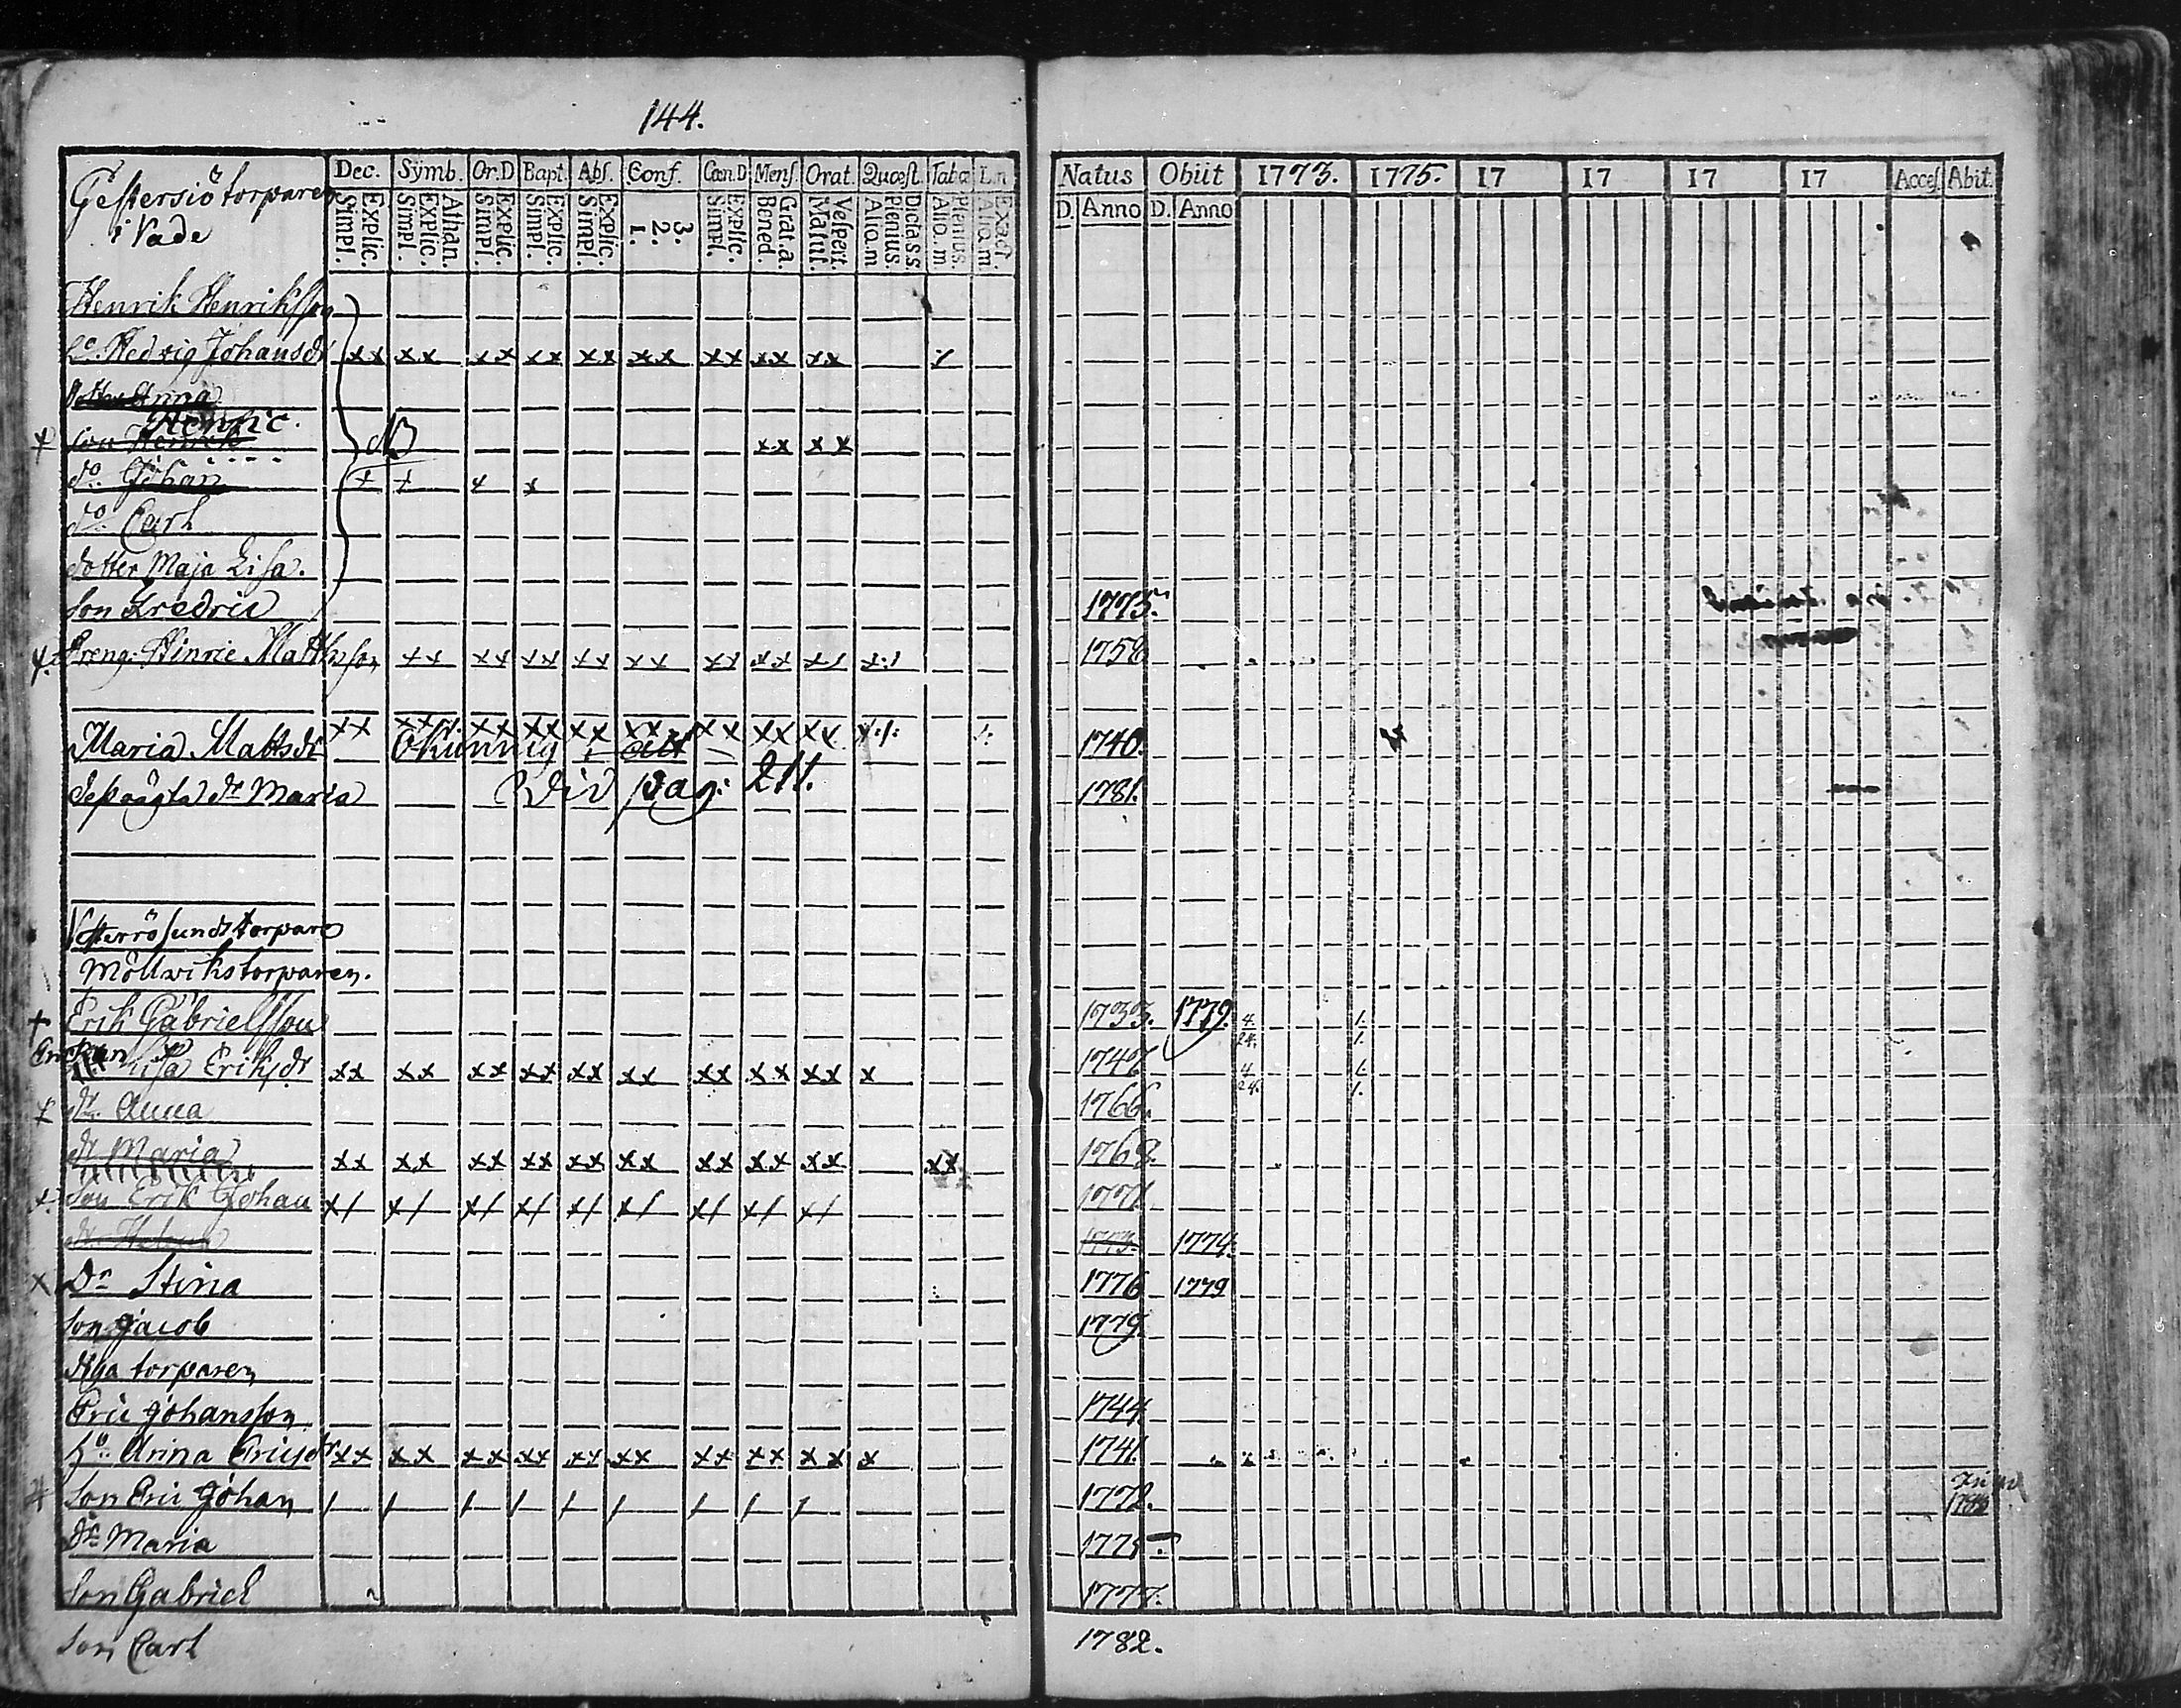 144.
Dec. Symb. Or.D Bapt. Abs. Conf. Cœn.D Mens. Orat. Quæst. Tabæ
Natus Obiit 1773. 1775. 17 17 17 17 Acces. Abit.
D. Anno D. Anno
Explic. Simpl. Athan. Explic. Simpl. Explic. Simpl. Explic. Simpl. Explic. Simpl. 3. 2. 1. Explic. Simpl. Grat.a. Bened. Vespert. Matut. Dicta s s. Plenius. Aliq.m Plenius. Aliq.m Exact. Aliq.m
Gestersiö torparen
i Vade
Henrik Henriksson
h:o Hedvig Johansdr xx xx xx xx xx xx xx xx xx
Dotter Anna
Henric.
Son Henrik NB xx xx
do Johan + + + x
do Carl
dotter Maja Lisa.
Son Fredric 1775.
Dreng. Hinric Mattsson xx xx xx xx xx xx xx xx 1758
Maria Mattsdr xx xx xx xx xx xx xx xx xx 1740.
okunnig i
Vid pag: 211.
dr Maria 1781.
Vesterrösunds torpare
Möllwikstorparen.
+ Erik Gabrielsson 1733. 1779. 4. 1.
24. 1.
Enckan
Lisa Eriksdr xx xx xx xx xx xx xx xx xx x 1747 4. 1.
24. 1.
dr. Anna 1766.
dr Maria xx xx xx xx xx xx xx xx xx xx 1768.
Son Erik Johan x/ x/ x/ x/ x/ x/ x/ x/ x/ 1771.
dr Helena 1773. 1774.
x Dr Stina 1776 1779
Son Jacob 1779.
Nya torparen
Eric Johansson 1744.
h:o Anna Ericsdr xx xx xx xx xx xx xx xx xx x 1741.
Son Eric Johan / / / / / / / / / 1772.
Dr Maria 1775.
Son Gabriel 1777.
Son Carl 1782.